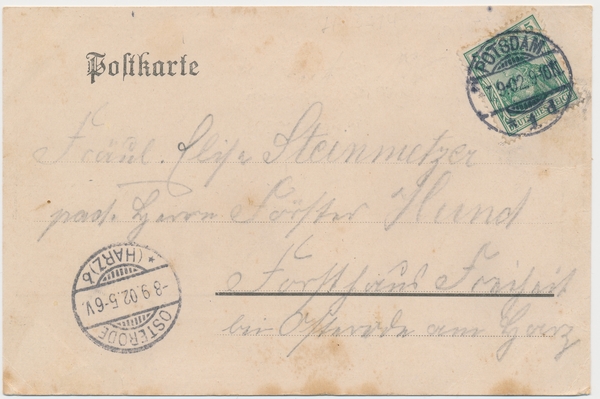 Postkarte
5
POTSDAM
7.9.02.9-10N.
* 1. d
DEUTSCHES REICH
Fräul. Elise Steinmetzer
pad. Herrn Förster Hund
Forsthaus Freiheit
bei Osterode am Harz
OSTERODE
-8.9.02.5-6V.
* (HARZ) b